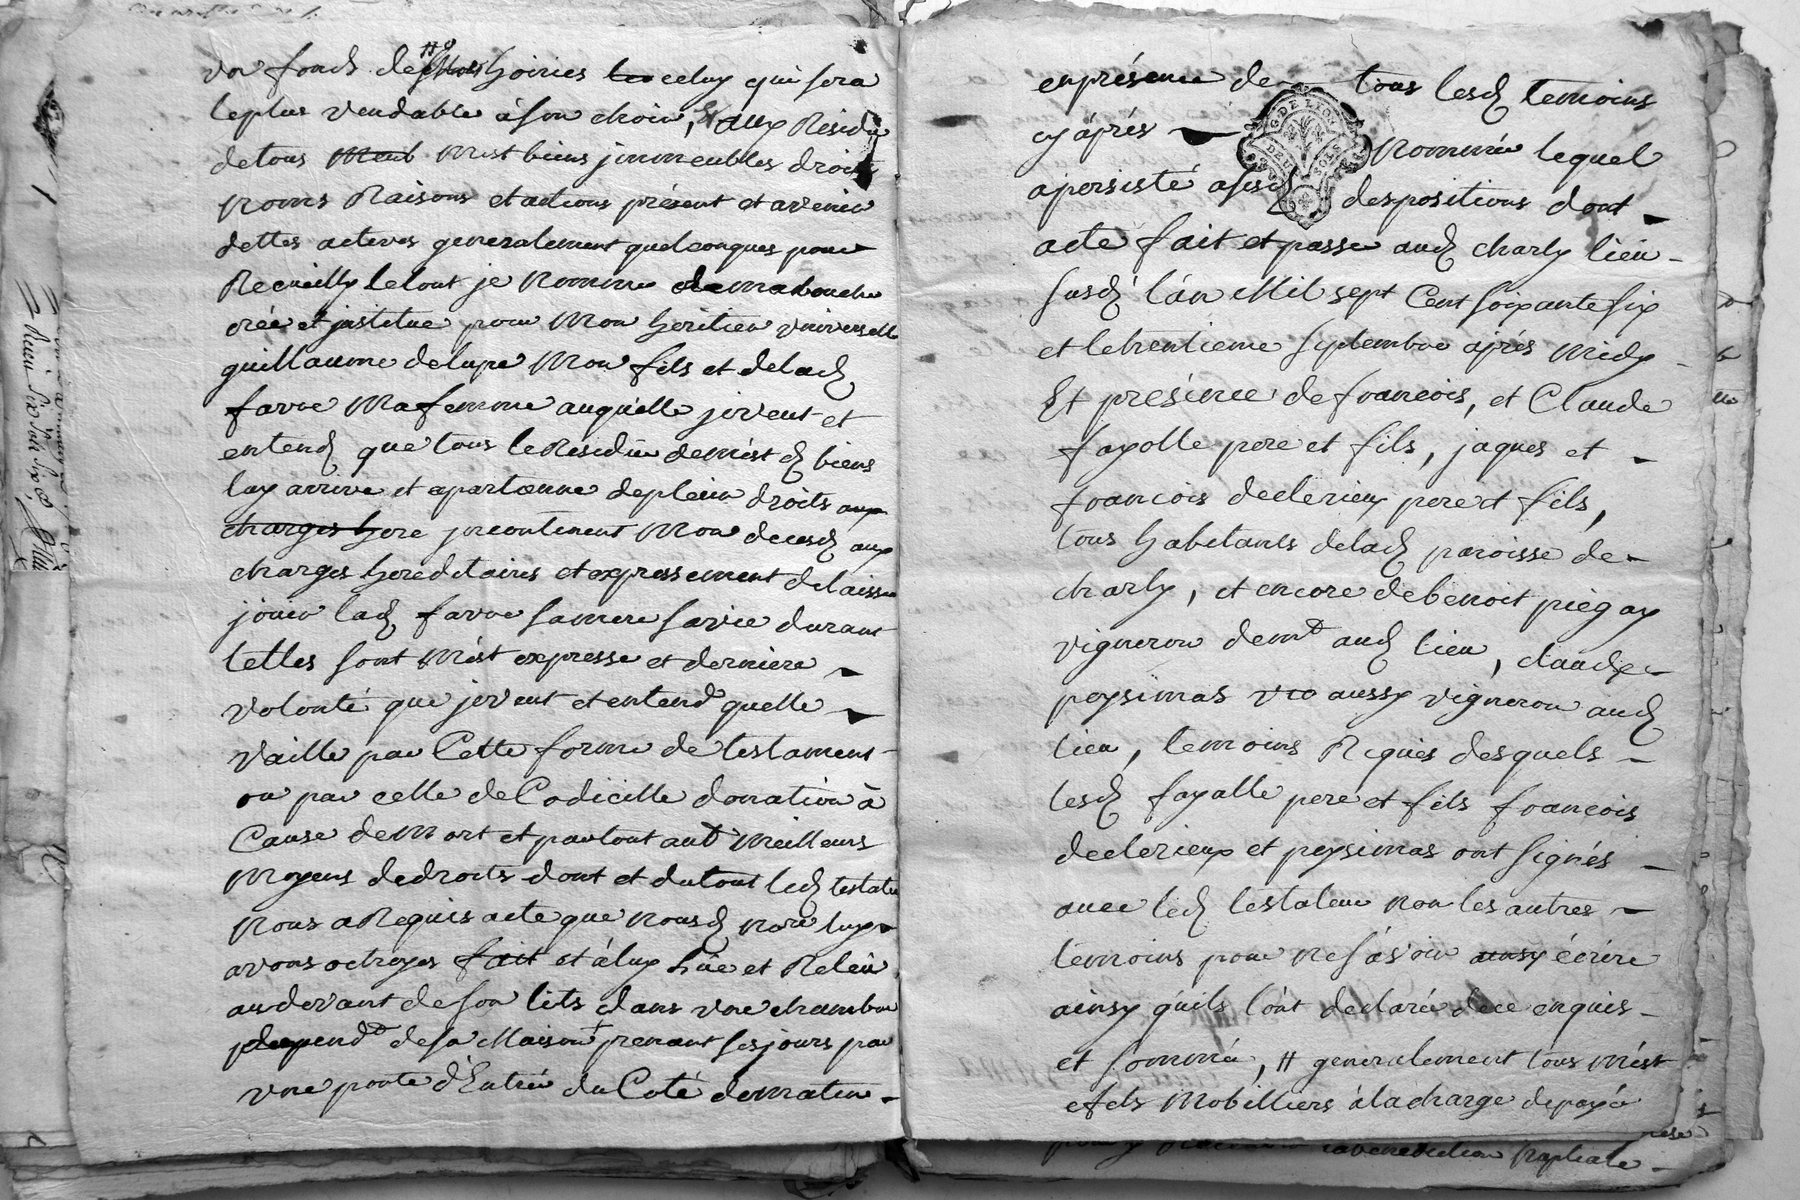 un fonds de hoiries celuy qui sera
leplus vendable àson choix, et aux Residu
detous Meub Mest biens jmmeubles droits
noms Raisons et actions présent et avenir
dettes actives generalement quelconques pour
Recueilly letout je Nomme demabouche
crée et jnstitue pour Mon heritier universelle
guillaume delupe Mon fils et deladᵉ
favre Mafemme auquelle jeveut et
entendᵈ que tous le Residu demest dᵗ biens
luy arrive et apartienne deplein droits aux
charges here jncontinent Mon decesdᵗ aux
charges hereditaires et expressement delaisser
jouir ladᵉ favre samere savie durant
telles sont Mest expresse et derniere
volonté que jeveut et entendᵈ quelle
vaille par Cette forme de testament
ou par celle de Codicille donation à
Cause demort et partout autᵉ Meilleurs
Moyens dedroits dont et dutout ledᵗ testateur
nous a Requis acte que nousdᵗ noʳᵉ luy
avons octroyes fait et àluy Lûe et Releüe
audevant deson lits dans une chambre
dependᵗᵉ desa Maison + prenant sesjours par
une porte d'Entrée du Coté dematin
enprésence de tous lesdᵗ temoins
cy áprés Nommés lequel
apersisté asesdᵗ despositions dont
G·DE LYON
DEUX SOLS
acte fait et passe audᵗ charly lieu
susdᵗ l'án Mil sept Cent soixante six
et letrentieme septembre aprés Midy
Et présence defrancois, et Claude
fayolle pere et fils, jaques et
francois declerieux pere et fils,
tous habitants deladᵉ paroisse de
charly, et encore debenoit piegay
vigneron demᵗ audᵗ lieu, claude
peysimas aussy vigneron audᵗ
lieu, temoins Requis desquels
lesdᵗ fayolle pere et fils francois
declerieux et peysimas ont signés
avec ledᵗ testateur non les autres
temoins pour ne sávoir écrire
ainsy quils l'ont declaré dece enquis
et sommé, # generalement tous mest
efets Mobilliers àlacharge depayé